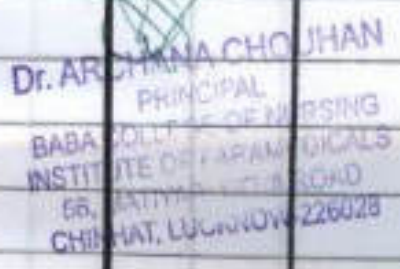 Dr. ARCHANA CHOUHAN
PRINCIPAL
BABA COLLEGE OF NURSING
INSTITUTE OF PARAMEDICALS
56, ROAD
CHINHAT, LUCKNOW-226028